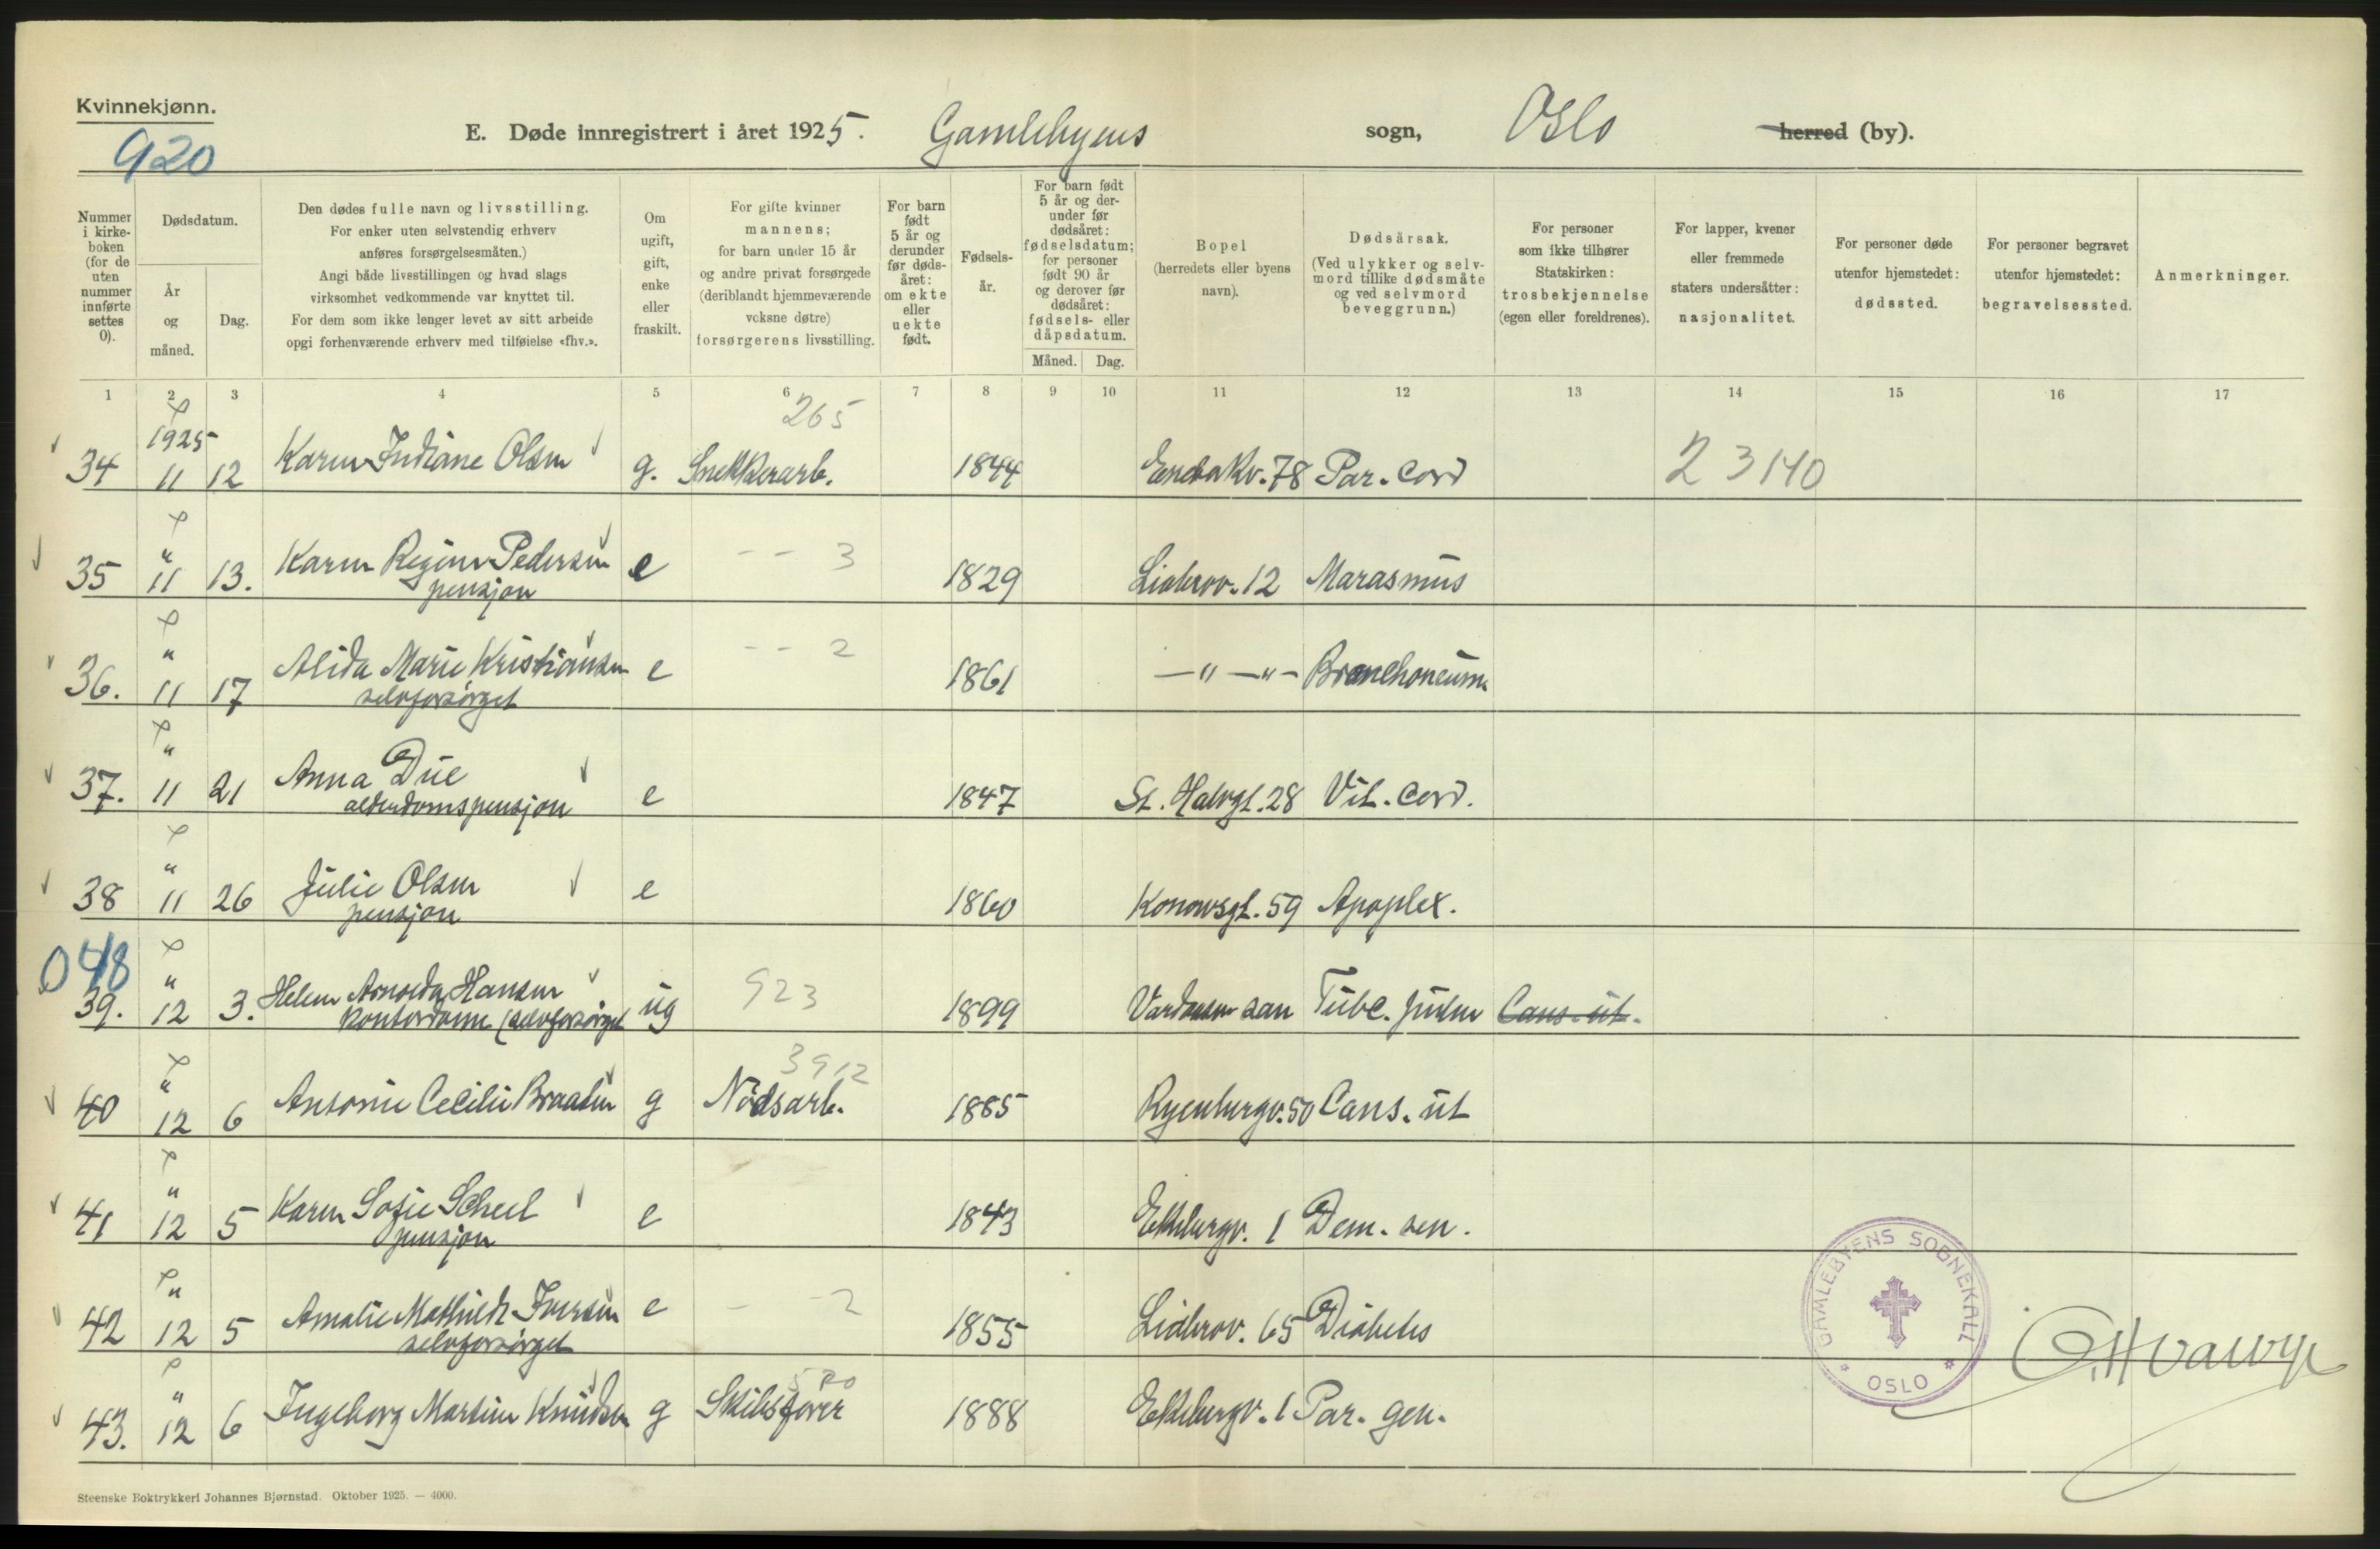 Kvinnekjønn.
920
E. Døde innregistrert i året 1925. Gamlebyens sogn, Oslo herred (by).
Nummer i kirke-boken (for de uten nummer innførte settes 0).
Dødsdatum.
År og måned.
Dag.
Den dødes fulle navn og livsstilling.
For enker uten selvstendig erhverv
anføres forsørgelsesmåten.)
Angi både livsstillingen og hvad slags
virksomhet vedkommende var knyttet til.
For dem som ikke lenger levet av sitt arbeide
opgi forhenværende erhverv med tilføielse «fhv.».
Om ugift, gift, enke eller fraskilt.
For gifte kvinner
mannens;
for barn under 15 år
og andre privat forsørgede
(deriblandt hjemmeværende
voksne døtre)
forsørgerens livsstilling.
For barn født 5 år og derunder før døds-året: om ekte eller uekte født.
Fødsels-år.
For barn født 5 år og der-under før dødsåret: fødselsdatum; for personer født 90 år og derover før dødsåret: fødsels- eller dåpsdatum.
Måned. Dag.
Bopel
(herredets eller byens
navn).
Dødsårsak.
(Ved ulykker og selv-
mord tillike dødsmåte
og ved selvmord
beveggrunn.)
For personer
som ikke tilhører
Statskirken:
trosbekjennelse
(egen eller foreldrenes).
For lapper, kvener
eller fremmede
staters undersåtter:
nasjonalitet.
For personer døde
utenfor hjemstedet:
dødssted.
For personer begravet
utenfor hjemstedet:
begravelsessted.
Anmerkninger.
1 2 3 4 5 6 7 8 9 10 11 12 13 14 15 16 17
1925 265
34 11 12 Karen Indiane Olsen g. Snekkerarb. 1844 Enebakv. 78 Par. cord 23140
" -- 3
35 11 13. Karen Regine Pedersen e 1829 Liabrov. 12 Marasmus
pensjon
" -- 2
36. 11 17 Alida Marie Kristiansen e 1861 —"—"— Bronchoneum.
selvforsørget
"
37. 11 21 Anna Due e 1847 St. Halvgt. 28 Vit. cord.
alderdomspensjon
"
38 11 26 Julie Olsen e 1860 Konowsgt. 59 Apoplex.
pensjon
048
" 923
39. 12 3. Helene Hansen ug 1899 Vardaasen san Tubc. pulm Cans. ut.
kontordame (selvforsørget
" 3912
40 12 6 Antonie Cecilie Braaten g Nødsarb. 1885 Ryenbergv. 50 Cans. ut
"
41 12 5 Karen Sofie Scheel e 1843 Ekebergv. 1 Dem. sen.
pensjon
" - -2
42 12 5 Amalie Mathilde Iversen e 1855 Liabrov. 65 Diabetes
selvforsørget
"
43. 12 6 Ingeborg Martine Knudsen g Skibsfører 1888 Ekebergv. 1 Par. gen.
GAMLEBYENS SOGNEKALL
* OSLO *
Steenske Boktrykkeri Johannes Bjørnstad. Oktober 1925. — 4000.